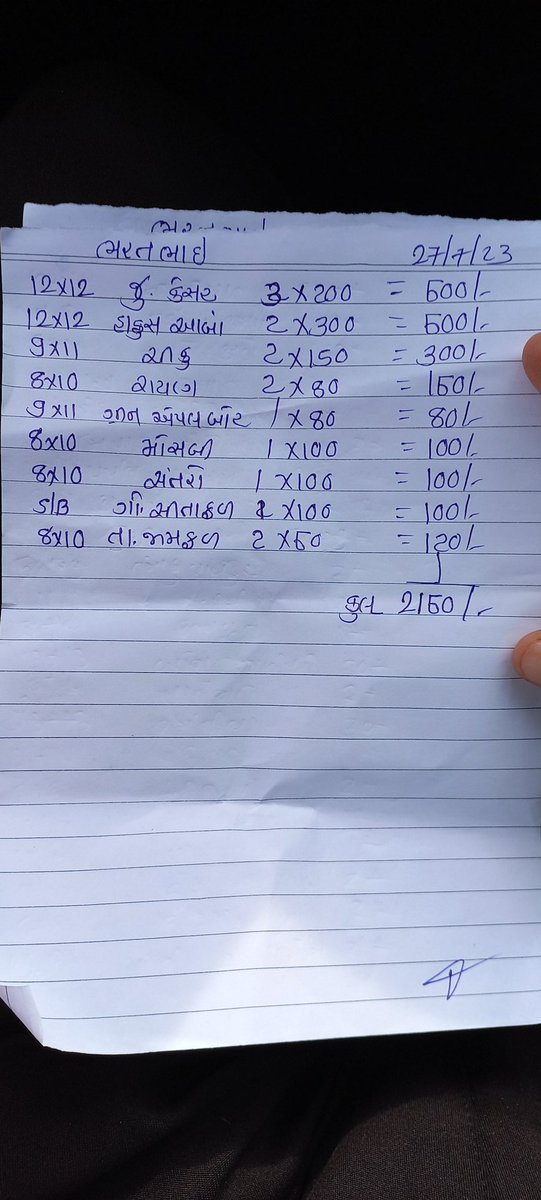 ભરતભાઇ 27/7/23
12x12 જુ. કેસર 3x200 = 600/-
12x12 હાફુસ આંબા 2x300 = 600/-
9x11 ચીકુ 2x150 = 300/-
8x10 રાયણ 2x80 = 160/-
9x11 ગ્રીન એપલ બોર 1x80 = 80/-
8x10 મોસંબી 1x100 = 100/-
8x10 સંતરા 1x100 = 100/-
S/B ગો. સીતાફળ 1x100 = 100/-
8x10 તા. જામફળ 2x60 = 120/-
કુલ 2160/-